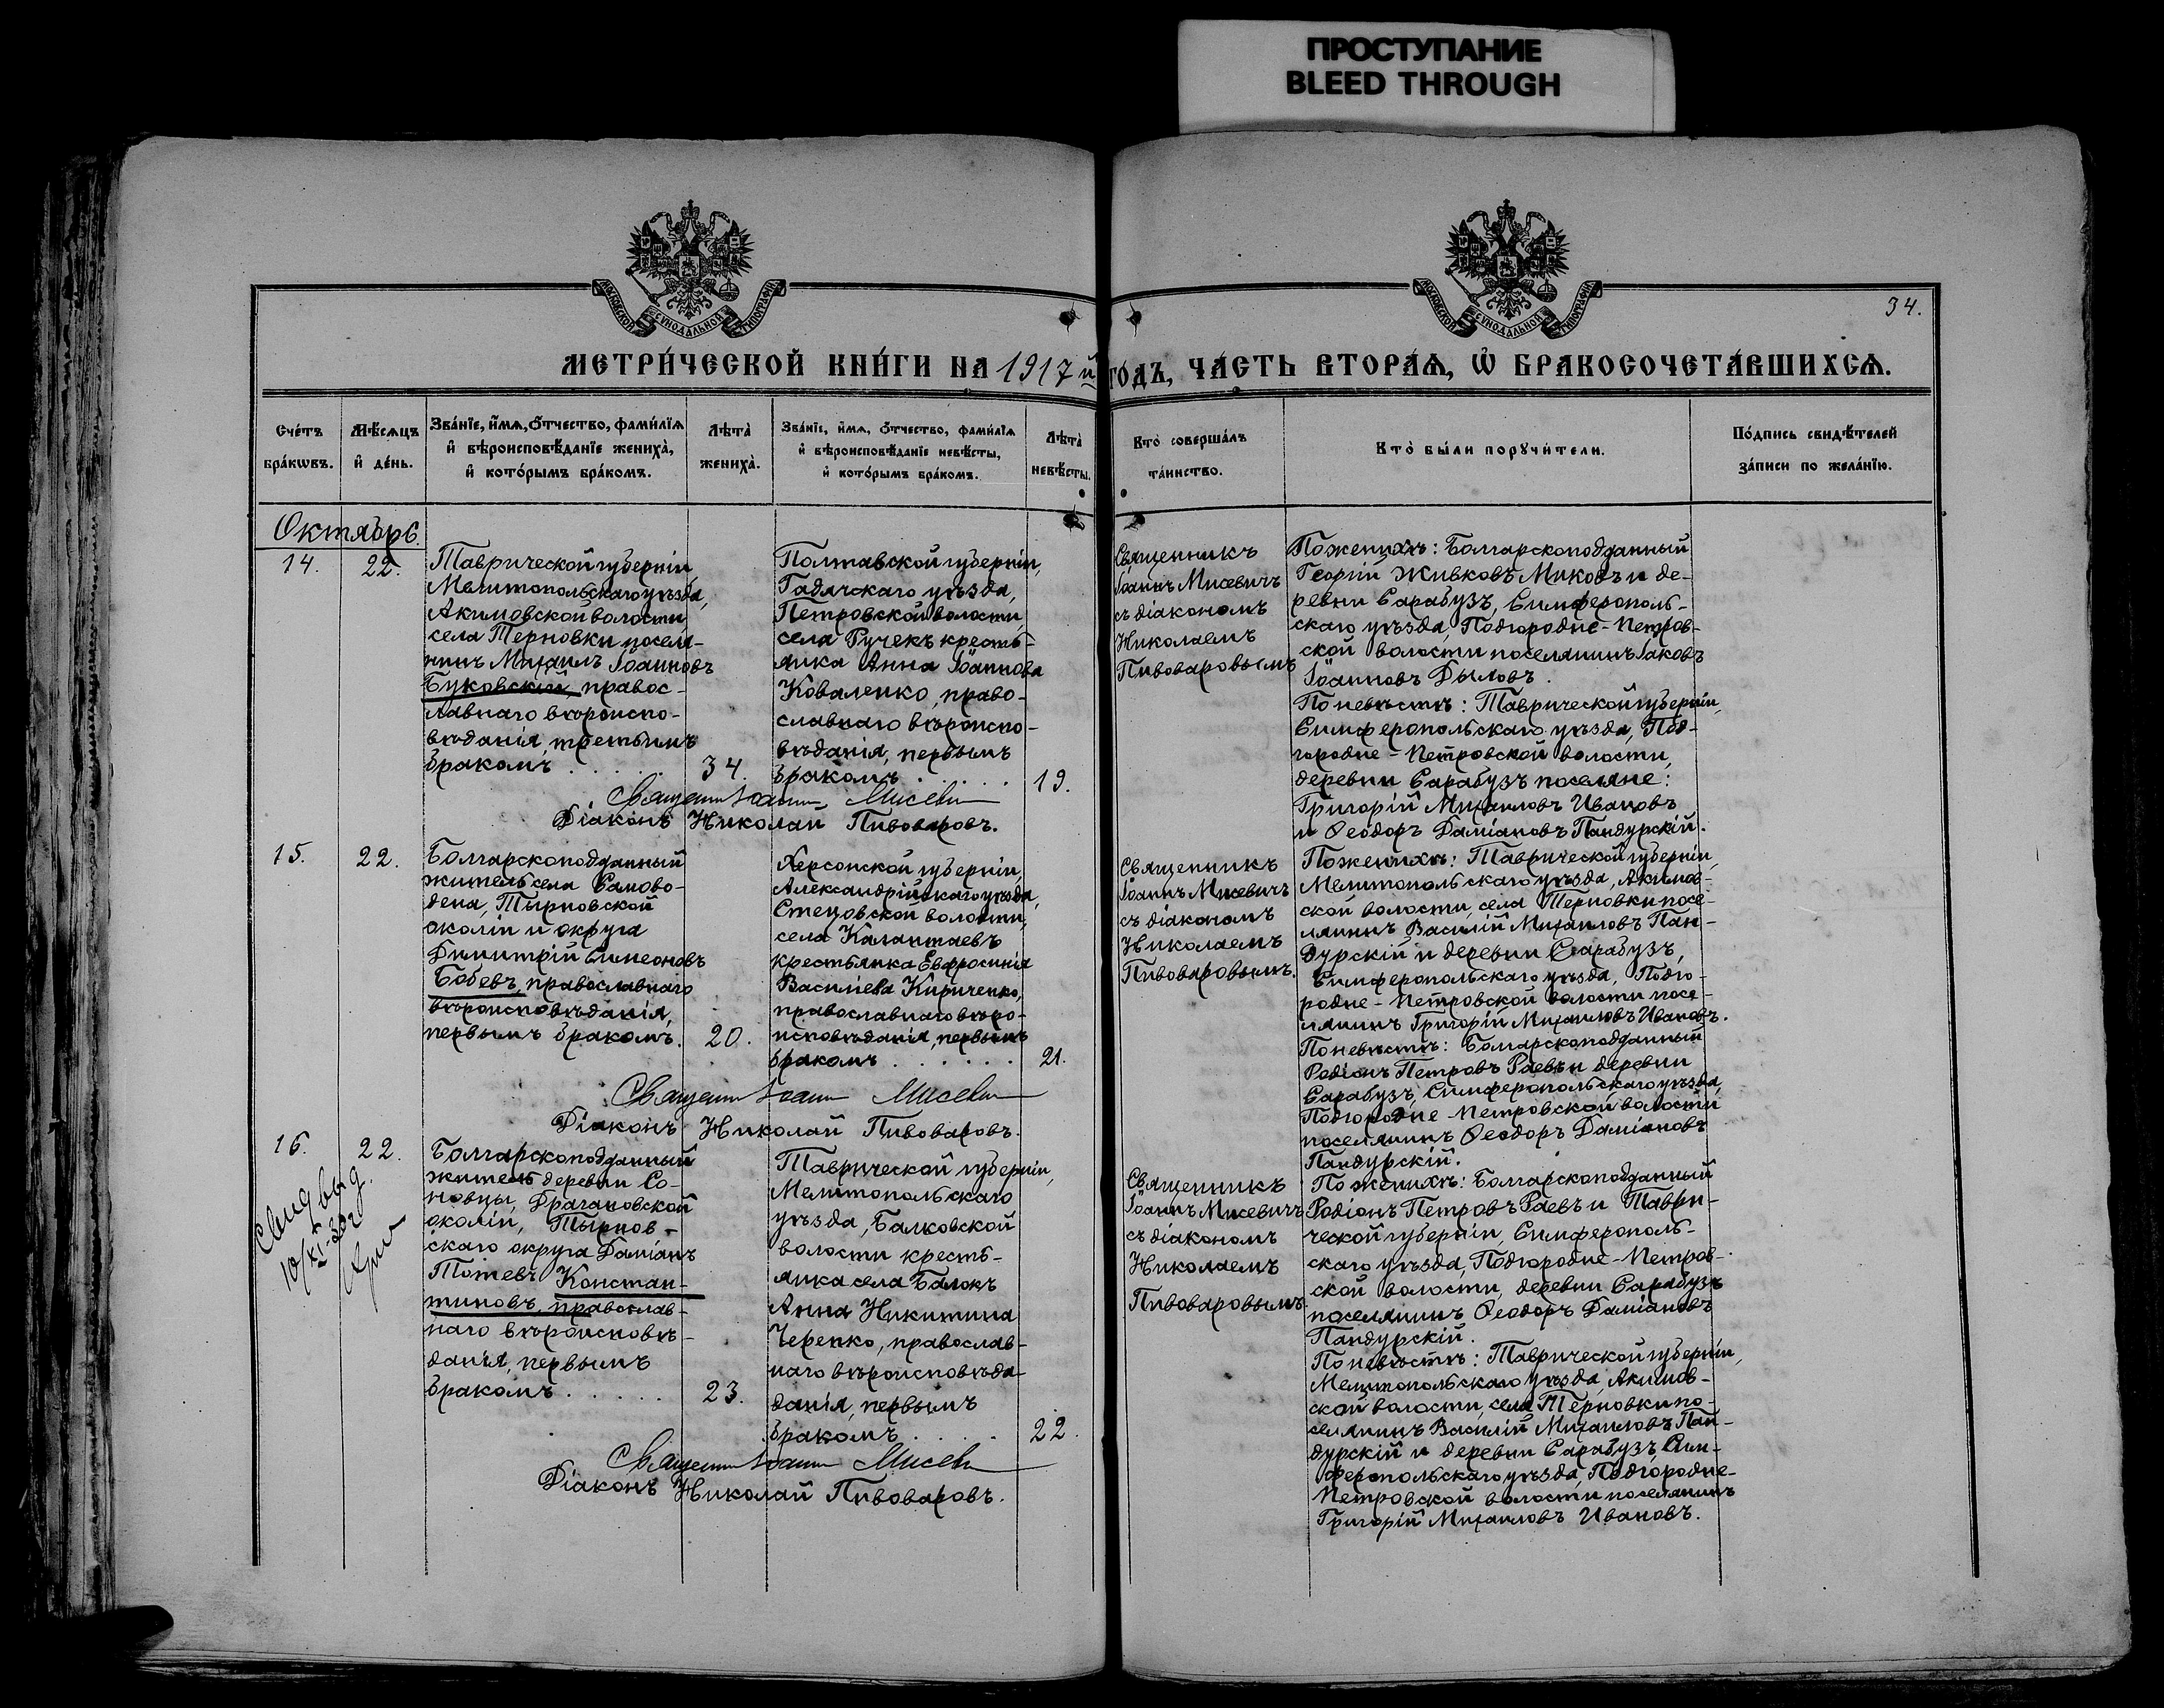 ПРОСТУПАНИЕ
BLEED THROUGH
МОСКОВСКОЙ СУНОДАЛЬНОЙ ТИПОГРАФІИ
МОСКОВСКОЙ СУНОДАЛЬНОЙ ТИПОГРАФІИ
34.
МЕТРИ́ЧЕСКОЙ КНИ́ГИ НА 1917 й ГО́ДЪ, ЧА́СТЬ ВТОРА́Ѧ, Ѡ҆ БРАКОСОЧЕТА́ВШИХСѦ.
Сче́тъ
бра́кѡвъ.
Мѣ́сѧцъ
и҆ де́нь.
Зва́нїе, и҆́мѧ, ѻ҆́тчество, фами́лїѧ
и҆ вѣроисповѣ́данїе жениха̀,
и҆ кото́рымъ бра́комъ.
Лѣ́та̀
жениха̀.
Зва́нїе, и҆́мѧ, ѻ҆́тчество, фами́лїѧ
и҆ вѣроисповѣ́данїе невѣ́сты,
и҆ кото́рымъ бра́комъ.
Лѣ́та̀
невѣ́сты.
Кто̀ соверша́лъ
та́инство.
Кто̀ бы́ли порꙋчи́тели.
По́дпись свидѣ́телей
за́писи по жела́нїю.
Октябрь.
14.
22.
Таврической губерніи
Мелитопольскаго уѣзда,
Акимовской волости
села Терновки поселя-
нинъ Михаилъ Іоанновъ
Буковскій правос-
лавнаго вѣроиспо-
вѣданія, третьимъ
бракомъ . . . . .
34.
Полтавской губерніи,
Гадячскаго уѣзда,
Петровской волости,
села Ручекъ кресть-
янка Анна Іоаннова
Коваленко, право-
славнаго вѣроиспо-
вѣданія, первымъ
бракомъ . . . . .
19.
Священникъ
Іоаннъ Мисевичъ
съ діакономъ
Николаемъ
Пивоваровымъ
По женихѣ: Болгарскоподданный
Георгій Живковъ Миковъ и де-
ревни Сарабузъ, Симферополь-
скаго уѣзда, Подгородне-Петров-
ской волости поселянинъ Іаковъ
Іоанновъ Дыловъ.
По невѣстѣ: Таврической губерніи,
Симферопольскаго уѣзда, Под-
городне-Петровской волости,
деревни Сарабузъ поселяне:
Григорій Михаиловъ Ивановъ
и Ѳеодоръ Даміановъ Пандурскій.
Священ Іоанн Мисеви
Діаконъ Николай Пивоваровъ.
15.
22.
Болгарскоподданный
житель села Самово-
дена, Тырновской
околіи и округа
Димитрій Симеоновъ
Бобевъ, православнаго
вѣроисповѣданія,
первымъ бракомъ.
20.
Херсонской губерніи,
Александрійскаго уѣзда,
Стецовской волости,
села Калантаевъ
крестьянка Евфросинія
Василіева Кириченко,
православнаго вѣро-
исповѣданія, первымъ
бракомъ . . . . .
21.
Священникъ
Іоаннъ Мисевичъ
съ діакономъ
Николаемъ
Пивоваровымъ.
По женихѣ: Таврической губерніи,
Мелитопольскаго уѣзда, Акимов-
ской волости, села Терновки посе-
лянинъ Василій Михаиловъ Пан-
дурскій и деревни Сарабузъ,
Симферопольскаго уѣзда, Подго-
родне-Петровской волости посе-
лянинъ Григорій Михаиловъ Ивановъ.
По невѣстѣ: Болгарскоподданный
Родіонъ Петровъ Раевъ и деревни
Сарабузъ, Симферопольскаго уѣзда,
Подгородне-Петровской волости
поселянинъ Ѳеодоръ Даміановъ
Пандурскій.
Священ Іоанн Мисеви
Діаконъ Николай Пивоваровъ.
16.
22.
Свид выд.
10/XI-30г
Болгарскоподданный
житель деревни Со-
новцы, Драгановской
околіи, Тырнов-
скаго округа Даміанъ
Тотевъ Констан-
тиновъ, православ-
наго вѣроисповѣ-
данія, первымъ
бракомъ . . . . .
23.
Таврической губерніи,
Мелитопольскаго
уѣзда, Балковской
волости кресть-
янка села Балокъ
Анна Никитина
Черепко, православ-
наго вѣроисповѣда-
данія, первымъ
бракомъ . . . . .
22.
Священникъ
Іоаннъ Мисевичъ
съ діакономъ
Николаемъ
Пивоваровымъ.
По женихѣ: Болгарскоподданный
Родіонъ Петровъ Раевъ и Таври-
ческой губерніи, Симферополь-
скаго уѣзда, Подгородне-Петров-
ской волости, деревни Сарабузъ
поселянинъ Ѳеодоръ Даміановъ
Пандурскій.
По невѣстѣ: Таврической губерніи,
Мелитопольскаго уѣзда, Акимов-
ской волости, села Терновки по-
селянинъ Василій Михаиловъ Пан-
дурскій и деревни Сарабузъ, Сим-
феропольскаго уѣзда, Подгородне-
Петровской волости поселянинъ
Григорій Михаиловъ Ивановъ.
Священ Іоанн Мисеви
Діаконъ Николай Пивоваровъ.